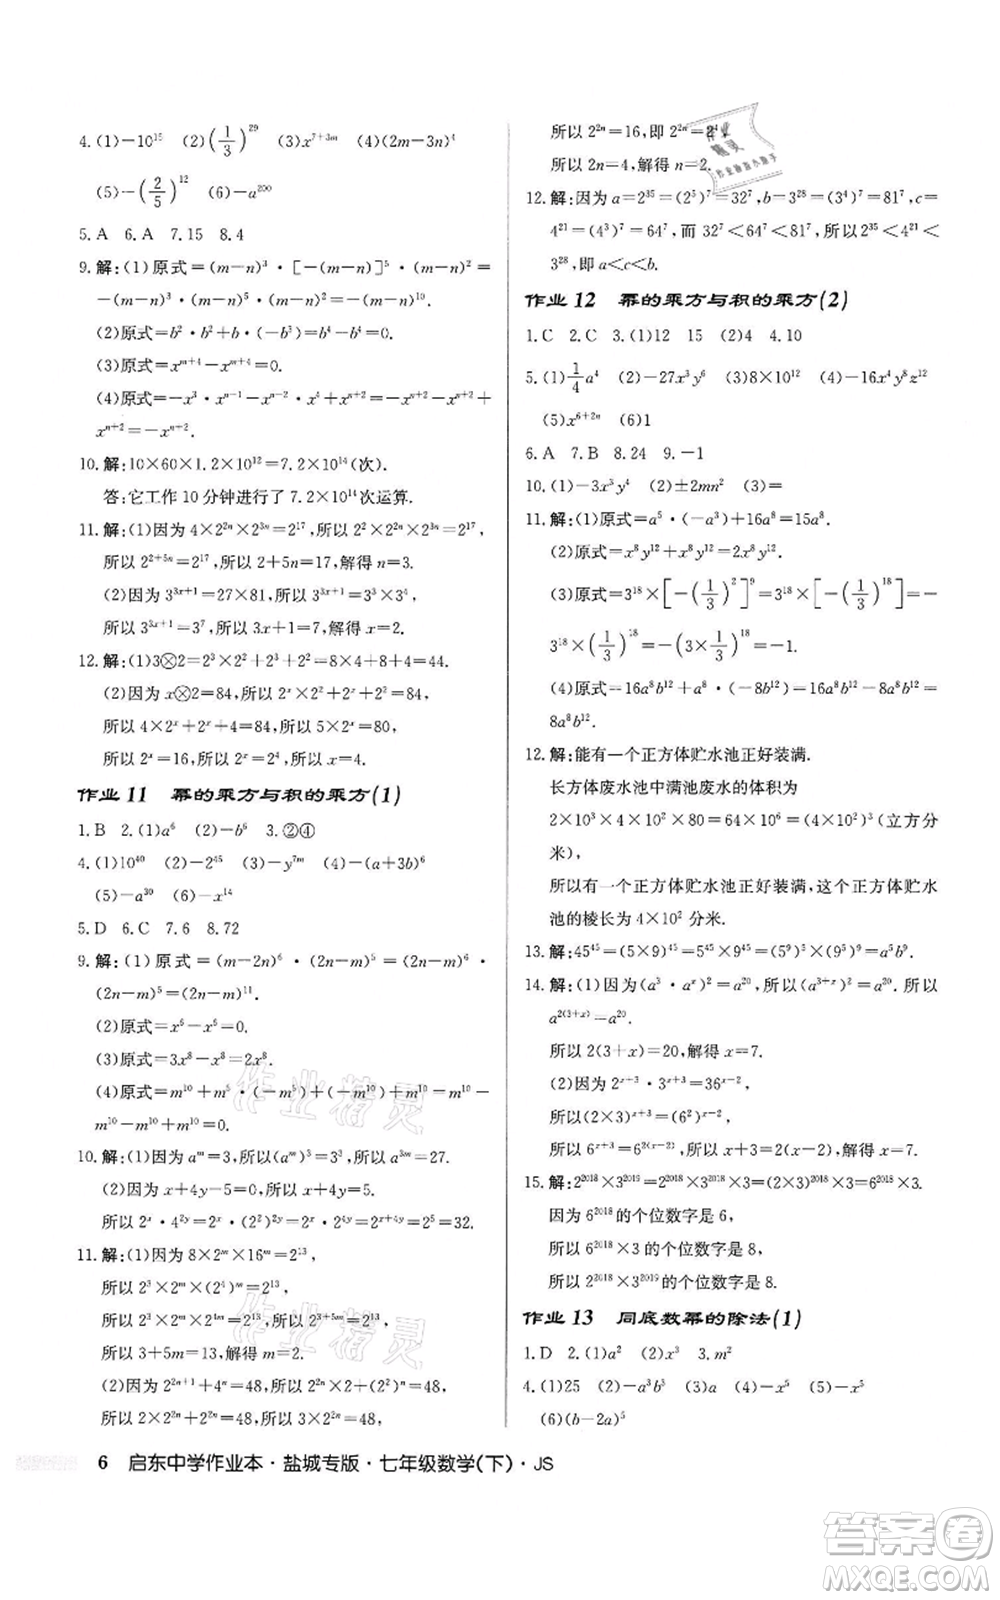 4.(1)-10¹⁵ (2)(1/3)²⁹ (3)x⁷⁺³ᵐ (4)(2m-3n)⁴
(5)-(2/5)¹² (6)-a²⁰⁰
5.A 6.A 7.15 8.4
9.解:(1)原式=(m-n)³·[-(m-n)]⁵·(m-n)²=
-(m-n)³·(m-n)⁵·(m-n)²=-(m-n)¹⁰.
(2)原式=b²·b²·b-b³·b²=b⁵-b⁵=0.
(3)原式=x^{m+4}-x^{m+4}=0.
(4)原式=-x³·x^{n-1}-x^{n-2}·x⁴+x^{n+2}=-x^{n+2}-x^{n+2}+
x^{n+2}=-x^{n+2}.
10.解:10×60×1.2×10¹²=7.2×10¹⁴(次).
答:它工作10分钟进行了7.2×10¹⁴次运算.
11.解:(1)因为4×2²ⁿ×2³ⁿ=2¹⁷,所以2²×2²ⁿ×2³ⁿ=2¹⁷,
所以2²⁺⁵ⁿ=2¹⁷,所以2+5n=17,解得n=3.
(2)因为3^{3x+1}=27×81,所以3^{3x+1}=3³×3⁴,
所以3^{3x+1}=3⁷,所以3x+1=7,解得x=2.
12.解:(1)3⊗2=2³×2²+2³+2²=32+8+4=44.
(2)因为x⊗2=84,所以2ˣ×2²+2ˣ+2²=84,
所以4×2ˣ+2ˣ+4=84,所以5×2ˣ=80,
所以2ˣ=16,所以2ˣ=2⁴,解得x=4.
作业11 幂的乘方与积的乘方(1)
1.B 2.(1)a⁶ (2)-b⁶ 3.②④
4.(1)10⁴⁰ (2)-2⁴⁵ (3)-y^{7m} (4)-(a+3b)⁶
(5)-a³⁰ (6)-x¹⁴
5.D 6.C 7.6 8.72
9.解:(1)原式=(m-2n)⁶·(2n-m)⁵=(2n-m)⁶·
(2n-m)⁵=(2n-m)¹¹.
(2)原式=x⁶-x⁶=0.
(3)原式=3x⁸-x⁸=2x⁸.
(4)原式=m¹⁰+m⁵·(-m⁵)+(-m¹⁰)+m¹⁰=m¹⁰-
m¹⁰-m¹⁰+m¹⁰=0.
10.解:(1)因为aᵐ=3,所以(aᵐ)³=3³,所以a³ᵐ=27.
(2)因为x+4y-5=0,所以x+4y=5.
所以2ˣ·4^{2y}=2ˣ·(2²)^{2y}=2ˣ·2^{4y}=2^{x+4y}=2⁵=32.
11.解:(1)因为8×2ᵐ×16ᵐ=2¹³,
所以2³×2ᵐ×(2⁴)ᵐ=2¹³,
所以2³×2ᵐ×2⁴ᵐ=2¹³,所以2³⁺⁵ᵐ=2¹³,
所以3+5m=13,解得m=2.
(2)因为2²ⁿ⁺¹+4ⁿ=48,所以2×2²ⁿ+(2²)ⁿ=48,
所以2×2²ⁿ+2²ⁿ=48,所以(2+1)×2²ⁿ=48,
所以2²ⁿ=16,即2²ⁿ=2⁴,
所以2n=4,解得n=2.
12.解:因为a=2³⁵=(2⁵)⁷=32⁷,b=3²⁸=(3⁴)⁷=81⁷,c=
4²¹=(4³)⁷=64⁷,而32⁷<64⁷<81⁷,所以2³⁵<4²¹<
3²⁸,即a<c<b.
作业12 幂的乘方与积的乘方(2)
1.C 2.C 3.(1)12 15 (2)4 4.10
5.(1)1/4a⁴ (2)-27x³y⁶ (3)8×10¹² (4)-16x⁴y⁸z¹²
(5)x⁶⁺²ⁿ (6)1
6.A 7.B 8.24 9.-1
10.(1)-3x³y⁴ (2)±2mn² (3)=
11.解:(1)原式=a⁵·(-a³)+16a⁸=15a⁸.
(2)原式=x⁸y¹²+x⁸y¹²=2x⁸y¹².
(3)原式=3¹⁸×[-(1/3)²]⁹=3¹⁸×[-(1/3)¹⁸]=-
3¹⁸×(1/3)¹⁸=-(3×1/3)¹⁸=-1.
(4)原式=16a⁸b¹²+a⁸·(-8b¹²)=16a⁸b¹²-8a⁸b¹²=
8a⁸b¹².
12.解:能有一个正方体贮水池正好装满.
长方体废水池中满池废水的体积为
2×10³×4×10²×80=64×10⁶=(4×10²)³(立方分
米),
所以有一个正方体贮水池正好装满,这个正方体贮水
池的棱长为4×10²分米.
13.解:45⁴⁵=(5×9)⁴⁵=5⁴⁵×9⁴⁵=(5⁹)⁵×(9⁵)⁹=a⁵b⁹.
14.解:(1)因为(a³·aˣ)²=a²⁰,所以(a³⁺ˣ)²=a²⁰.所以
a^{2(3+x)}=a²⁰.
所以2(3+x)=20,解得x=7.
(2)因为2^{x+3}·3^{x+3}=36^{x-2},
所以(2×3)^{x+3}=(6²)^{x-2},
所以6^{x+3}=6^{2(x-2)},所以x+3=2(x-2),解得x=7.
15.解:2²⁰¹⁸×3²⁰¹⁹=2²⁰¹⁸×3²⁰¹⁸×3=(2×3)²⁰¹⁸×3=6²⁰¹⁸×3.
因为6²⁰¹⁸的个位数字是6,
所以6²⁰¹⁸×3的个位数字是8.
所以2²⁰¹⁸×3²⁰¹⁹的个位数字是8.
作业13 同底数幂的除法(1)
1.D 2.(1)a² (2)-x 3.m²
4.(1)25 (2)-a³b³ (3)a (4)-x⁵ (5)-x⁵
(6)(b-2a)⁵
6 启东中学作业本·盐城专版·七年级数学(下)·JS
作业精灵
作业精灵
答案圈
MXQE.COM